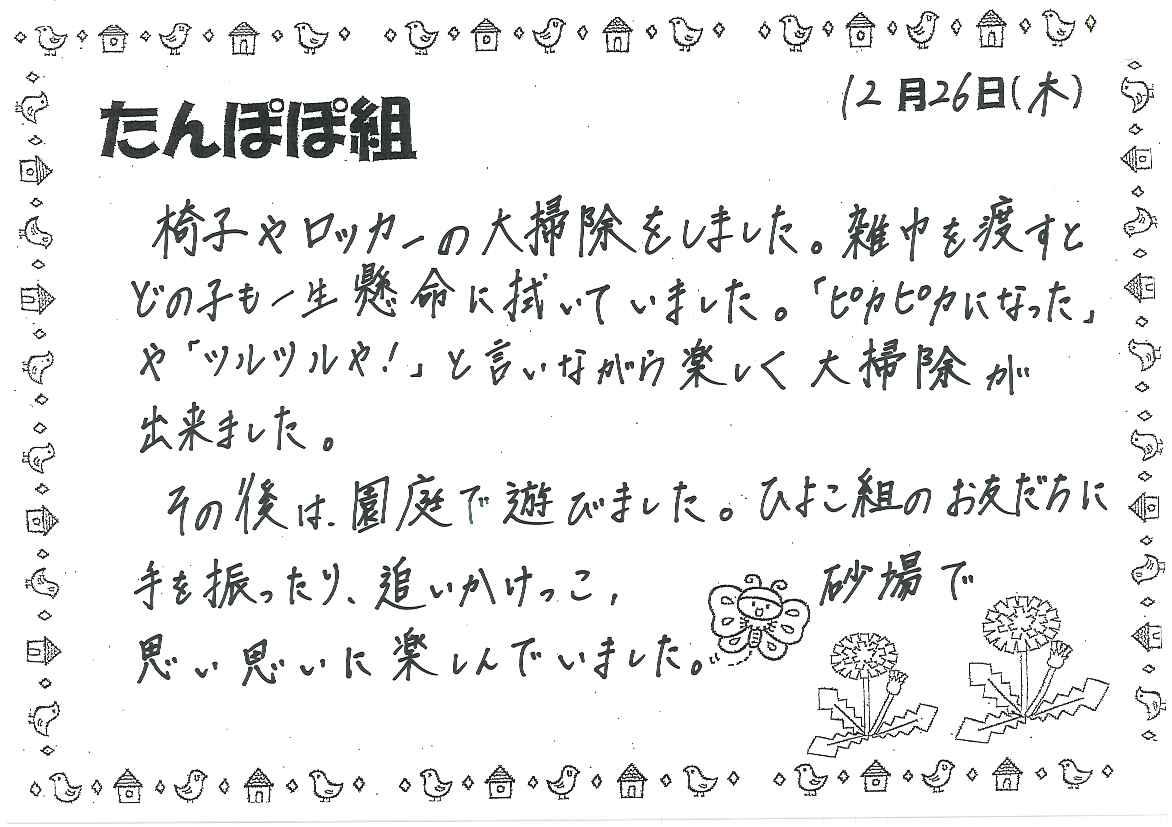 12月26日(木)
たんぽぽ組
椅子やロッカーの大掃除をしました。雑巾を渡すと
どの子も一生懸命に拭いていました。「ピカピカになった」
や「ツルツルや!」と言いながら楽しく大掃除が
出来ました。
その後は、園庭で遊びました。ひよこ組のお友だちに
手を振ったり、追いかけっこ、砂場で
思い思いに楽しんでいました。